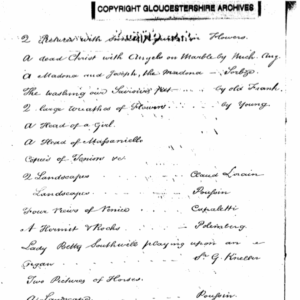 COPYRIGHT GLOUCESTERSHIRE ARCHIVES
2 Pictures with in Flowers.
A dead Christ with Angels on Marble by Mich. Ang.
A Madona and Joseph, the Madona
The washing our Saviours feet - - by old Frank
2 large wreathes of Flowers - - by Young
A Head of a Girl
A Head of Massaniello
Copies of &c
2 Landscapes - - - Claud Lorain
Landscapes - - - Poussin
Four Views of Venice - - Canaletti
A Hermit & Rocks - -
Lady Betty Southwell playing upon an
organ - - - Sr G. Kneller
Two Pictures of Horses.
A Landscape - - - Poussin